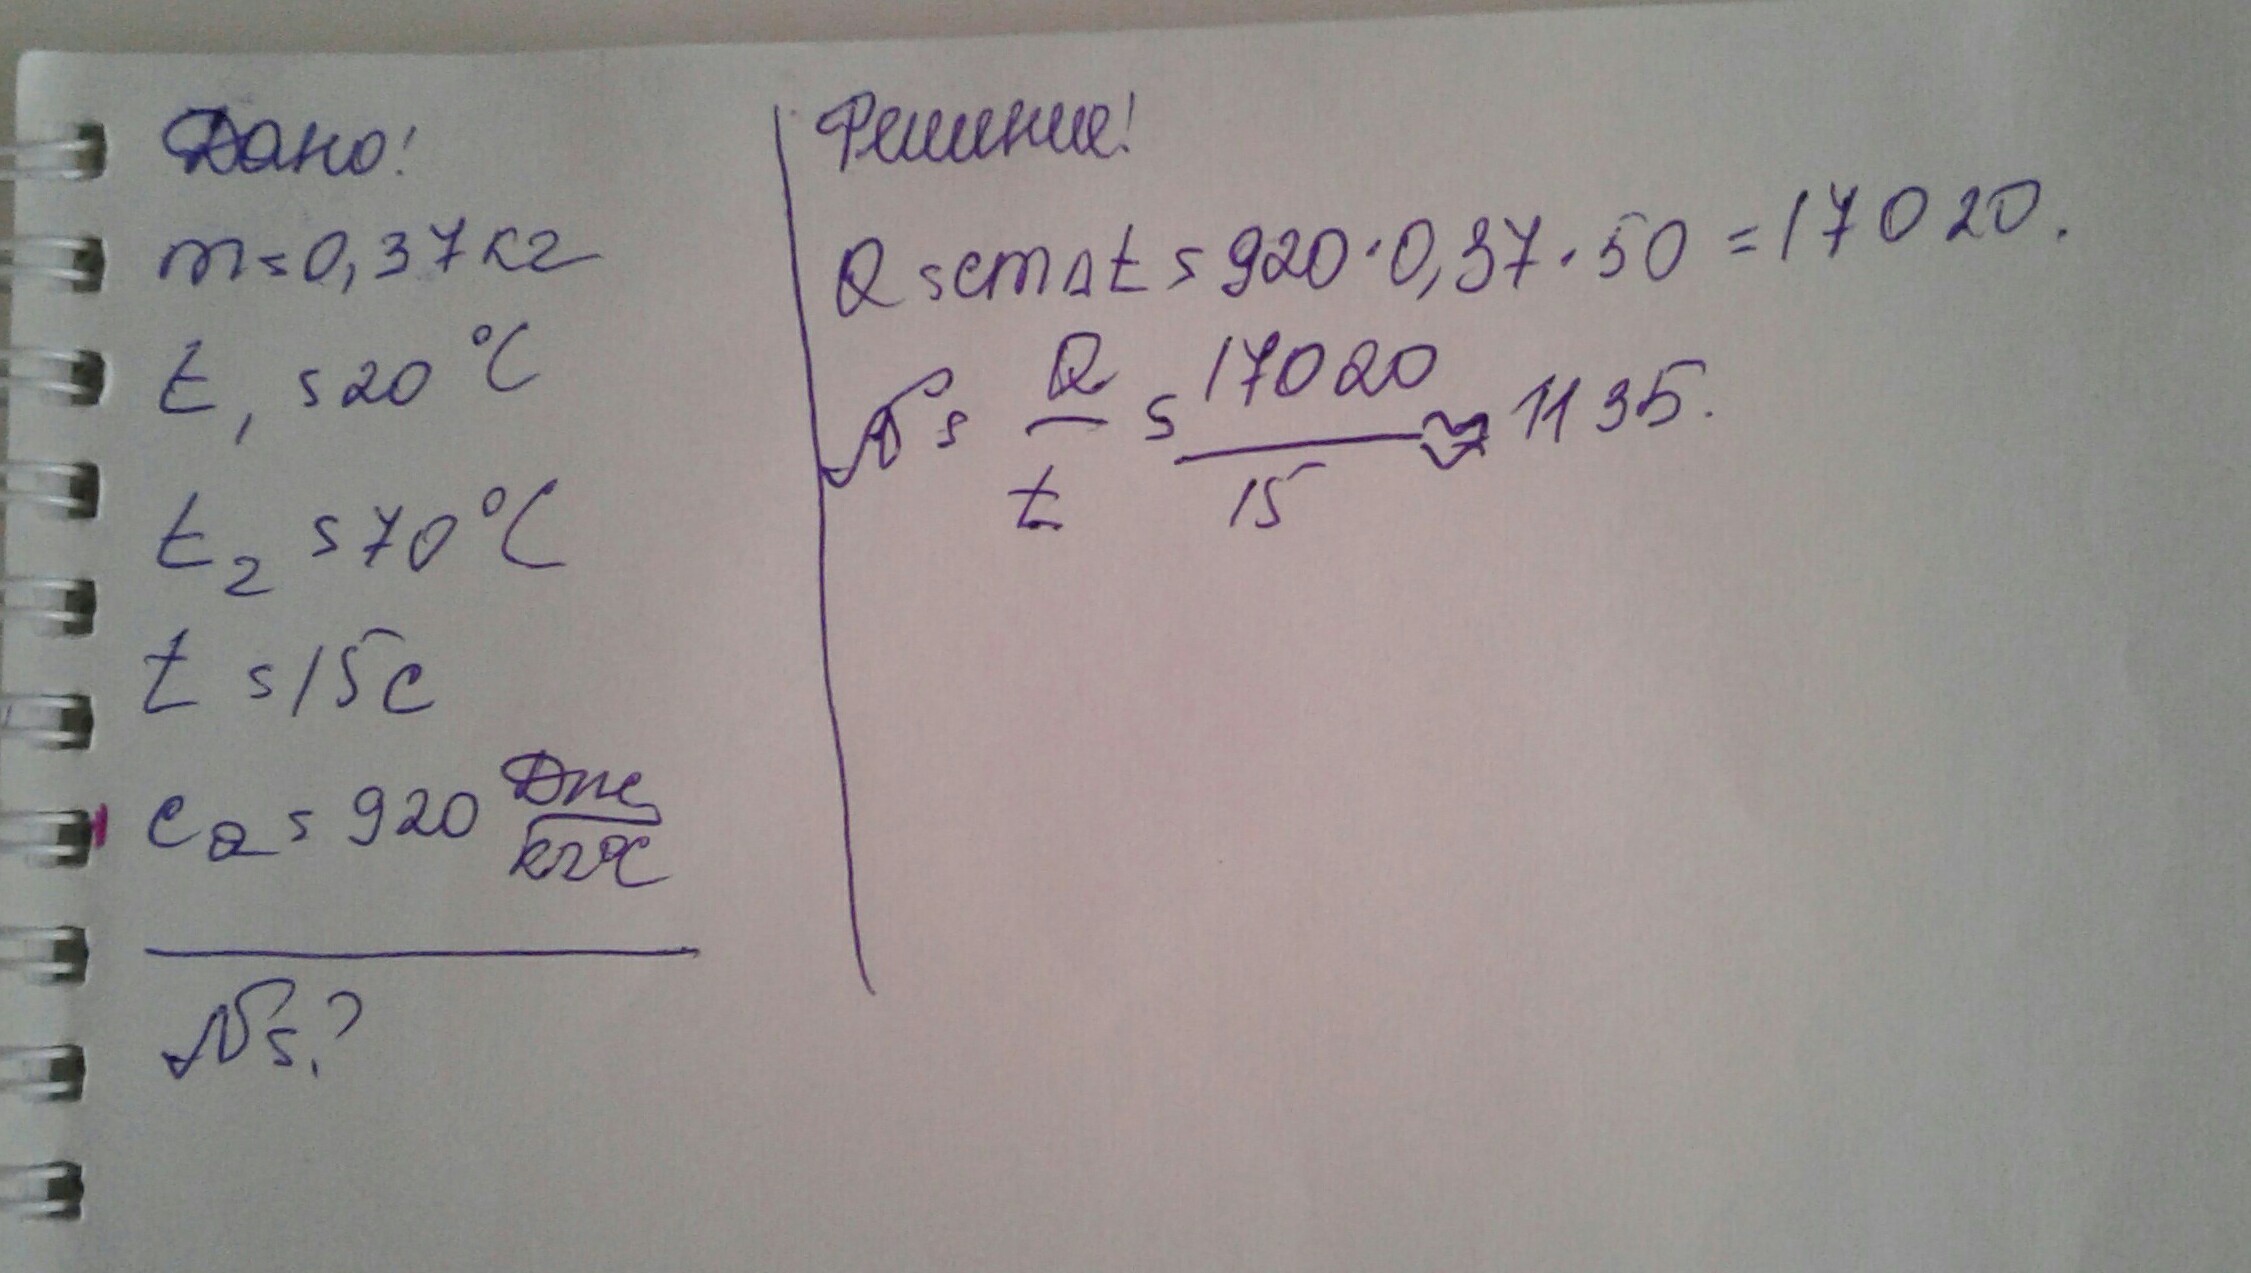 Дано!
m=0,37кг
t₁ =20 °C
t₂ =70°C
t =15c
c₂= 920 Дж/кг°C
N=?
Решение!
Q =cm∆t = 920·0,37·50 =17020.
N= Q/t = 17020/15 ≈ 1135.